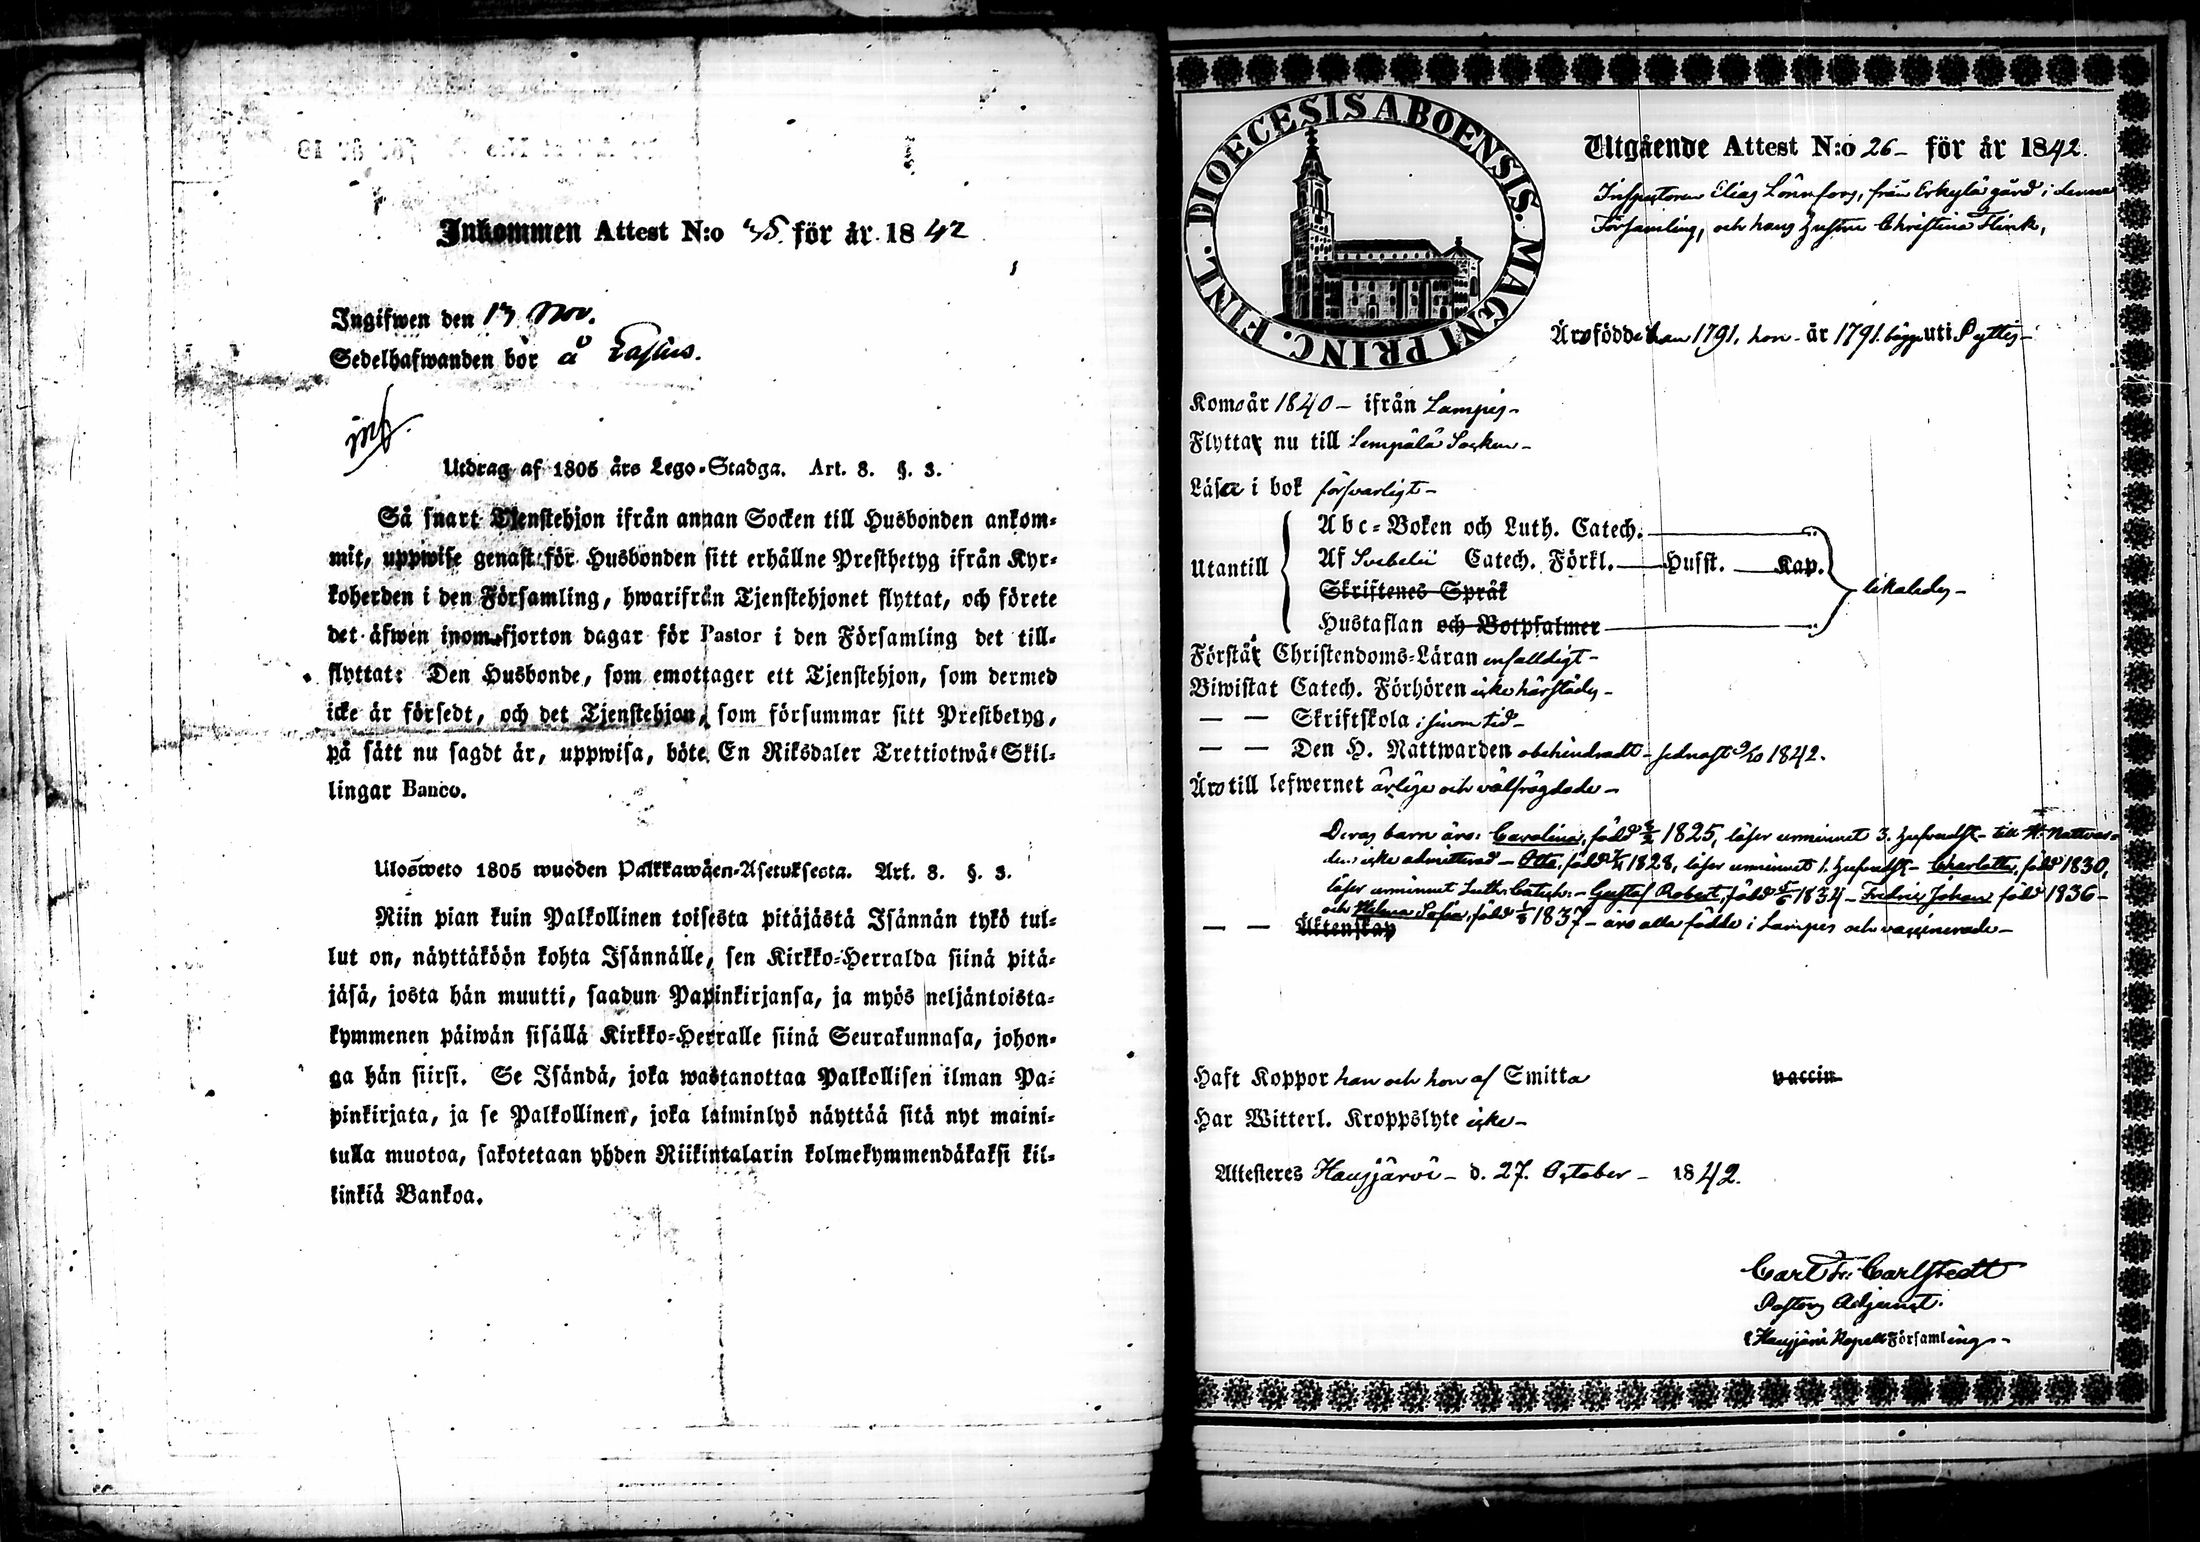 Inkommen Attest N:o 35. för år 1842
Ingifwen den 13 Nov.
Sedelhafwanden bor å
Utdrag af 1805 års Lego-Stadga. Art. 8. §. 3.
Så snart Tjenstehjon ifrån annan Socken till Husbonden ankom-
mit, uppwise genast för Husbonden sitt erhållne Prestbetyg ifrån Kyr-
koherden i den Församling, hwarifrån Tjenstehjonet flyttat, och förete
det äfwen inom fjorton dagar för Pastor i den Församling det till-
flyttat: Den Husbonde, som emottager ett Tjenstehjon, som dermed
icke är försedt, och det Tjenstehjon, som försummar sitt Prestbetyg,
på sätt nu sagdt är, uppwisa, böte En Riksdaler Trettiotwå Skil-
lingar Banco.
Ulosweto 1805 wuoden Palkkawäen-Asetuksesta. Art. 8. §. 3.
Niin pian kuin Palkollinen toisesta pitäjästä Isännän tykö tul-
lut on, näyttäköön kohta Isännälle, sen Kirkko-Herralda siinä pitä-
jäsä, josta hän muutti, saadun Papinkirjansa, ja myös neljäntoista-
kymmenen päiwän sisällä Kirkko-Herralle siinä Seurakunnasa, johon-
ga hän siirsi. Se Isändä, joka wastanottaa Palkollisen ilman Pa-
pinkirjata, ja se Palkollinen, joka laiminlyö näyttää sitä nyt maini-
tulla muotoa, sakotetaan yhden Riikintalarin kolmekymmendäkaksi kil-
linkiä Bankoa.
DIOECESIS ABOENSIS. MAGNI PRINC. FINL.
Utgående Attest N:o 26 – för år 1842.
Inspectoren Elias Lönnfors, från Erkylä gård i denna
Församling, och hans hustru Christina Flink,
Äro födde han 1791, hon - år 1791. bägge uti Pyttis –
Komo år 1840 – ifrån Lampis –
Flytta nu till Lempälä Socken –
Läsa i bok försvarligt –
Utantill
Abc-Boken och Luth. Catech.
Af Svebelii Catech. Förkl. Husst. Kap.
likaledes –
Skriftenes Språk
Hustaflan och Botpsalmer
Förstå Christendoms-Läran enfalldigt –
Biwistat Catech. Förhören icke härstädes –
— — Skriftskola i sinom tid –
— — Den H. Nattwarden obehindradt – sednast 9/10 1842.
Äro till lefwernet ärlige och välfrägdade –
Deras barn äro: Carolina, född 1825, läser urminnet 3. hufvudst. – till H. Nattvar-
den icke admitterad – Otto, född 1828, läser urminnet 1. hufvudst. – Charlotta, född 1830,
läser urminnet Luth. Catech. – Gustaf Robert, född 1834 – Fredric Johan född 1836 –
och Helena Sofia, född 1837 – äro alla födde i Lampis och vaccinerade –
— — Äktenskap
Haft Koppor han och hon af Smitta vaccin
Har Witterl. Kroppslyte icke –
Attesteres Hausjärvi – d. 27. October – 1842.
Carl Fr: Carlstedt
Pastors Adjunct.
i Hausjärvi Kapell Församling –